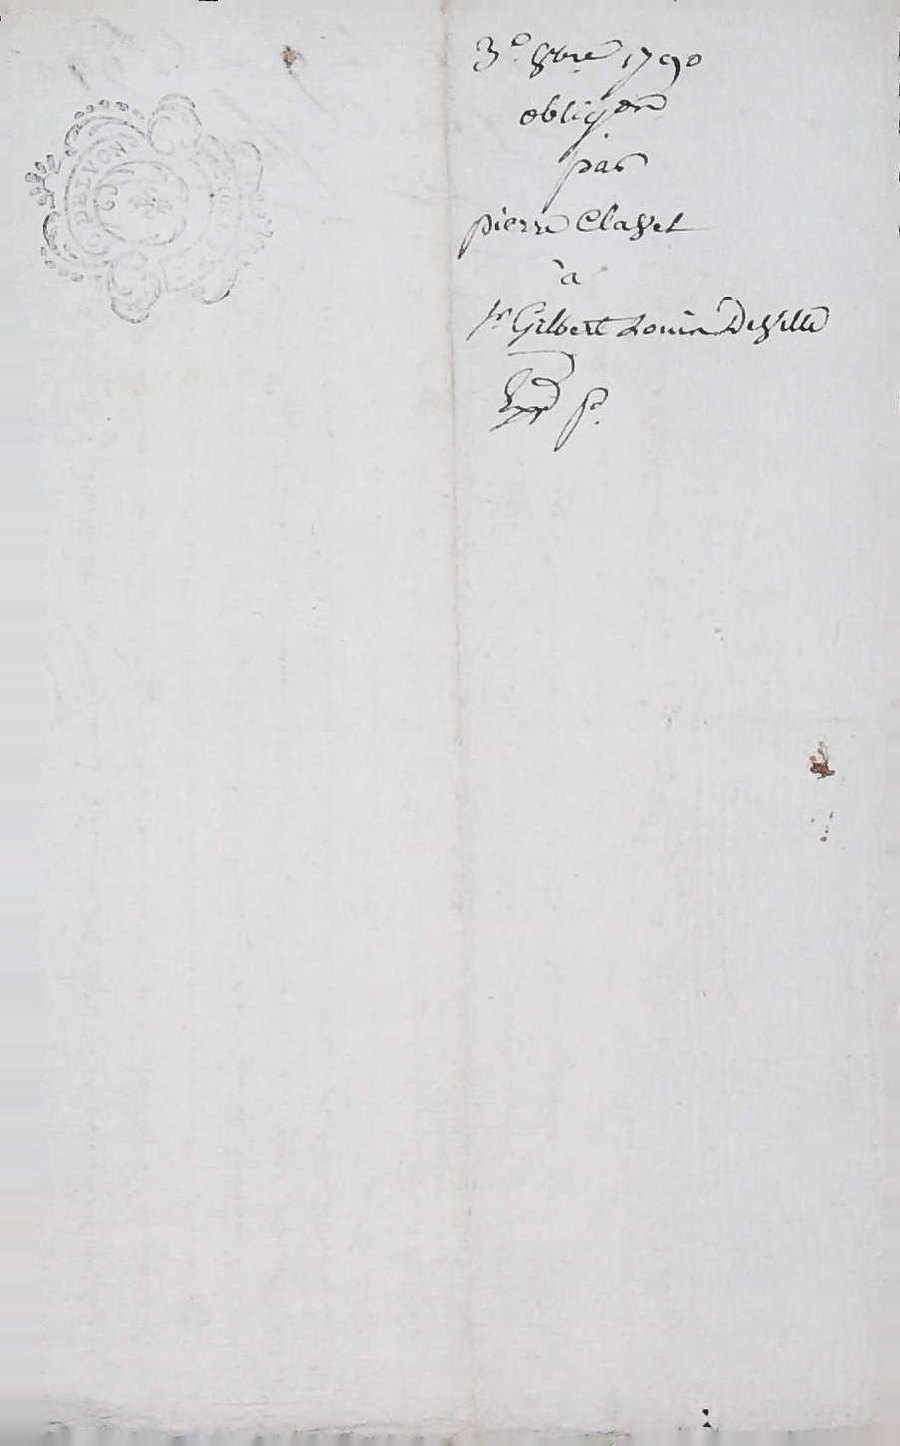 3e 8bre 1790
obligaon
par
pierre Clavel
à
Sr Gilbert Louis Deville
Exp p.